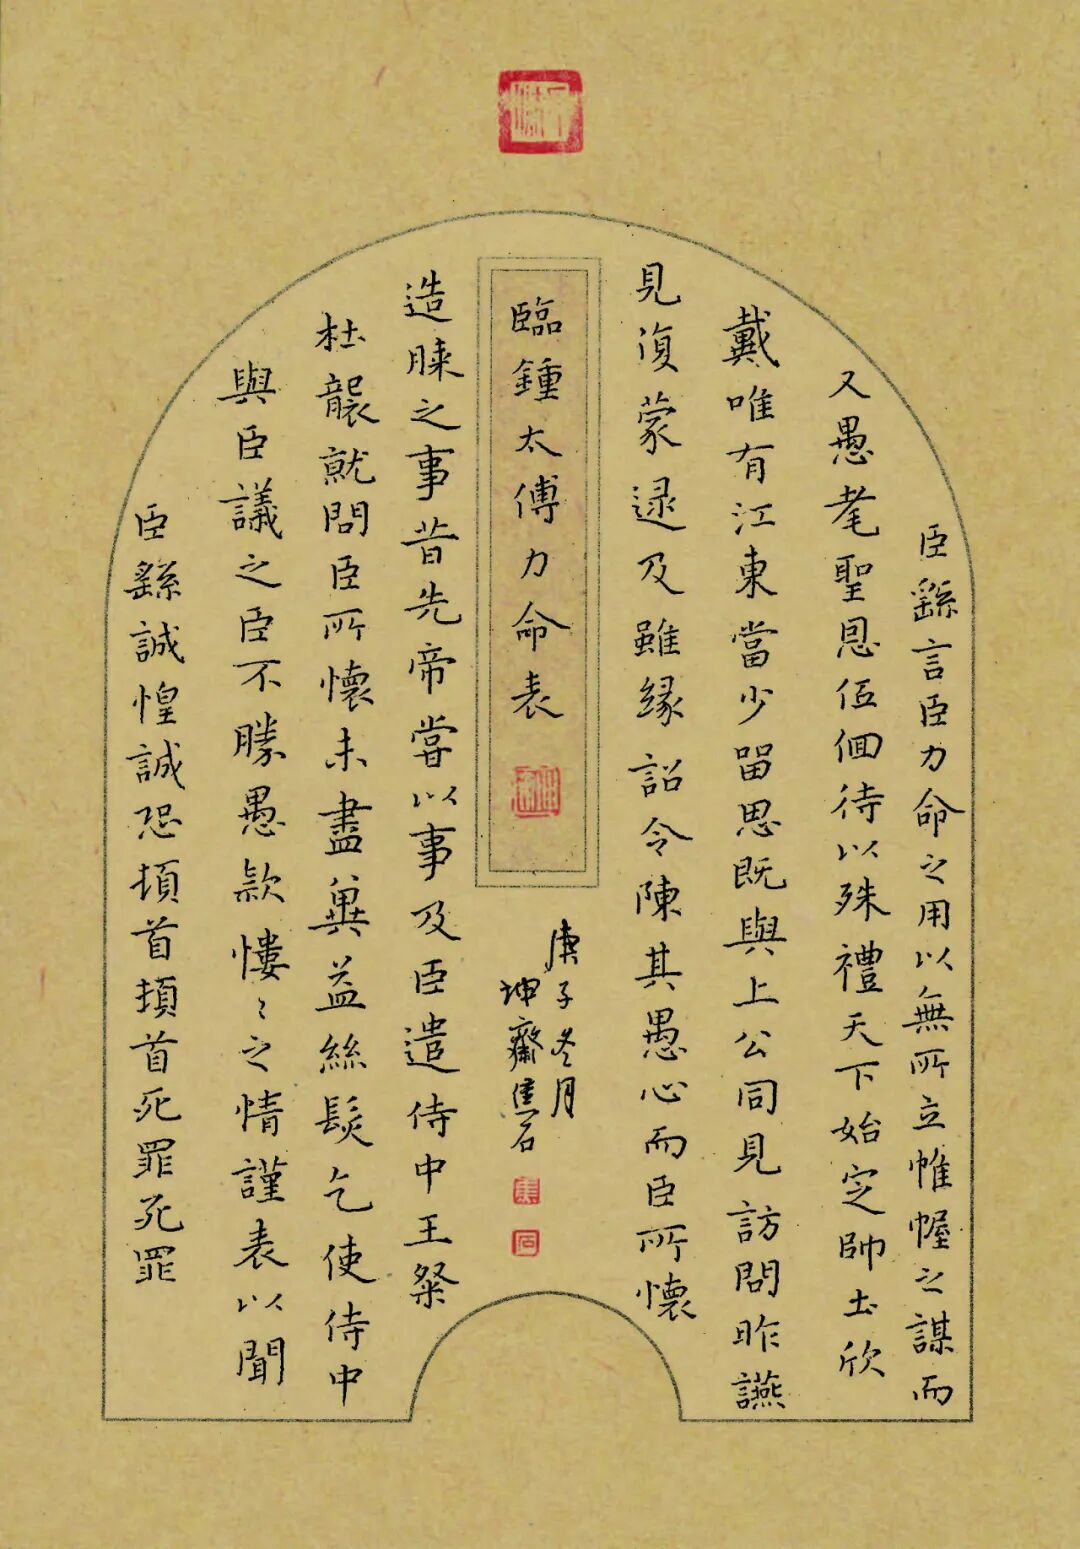 臣繇言臣力命之用以無所立帷幄之謀而
又愚耄聖恩低佪待以殊禮天下始定帥土欣
戴唯有江東當少留思既與上公同見訪問昨讌
見復蒙逮及雖緣詔令陳其愚心而臣所懷
臨鍾太傅力命表
庚子冬月
坤齋焦石
焦
石
造膝之事昔先帝嘗以事及臣遣侍中王粲
杜襲就問臣所懷未盡冀益絲髮乞使侍中
與臣議之臣不勝愚款慺〻之情謹表以聞
臣繇誠惶誠恐頓首頓首死罪死罪